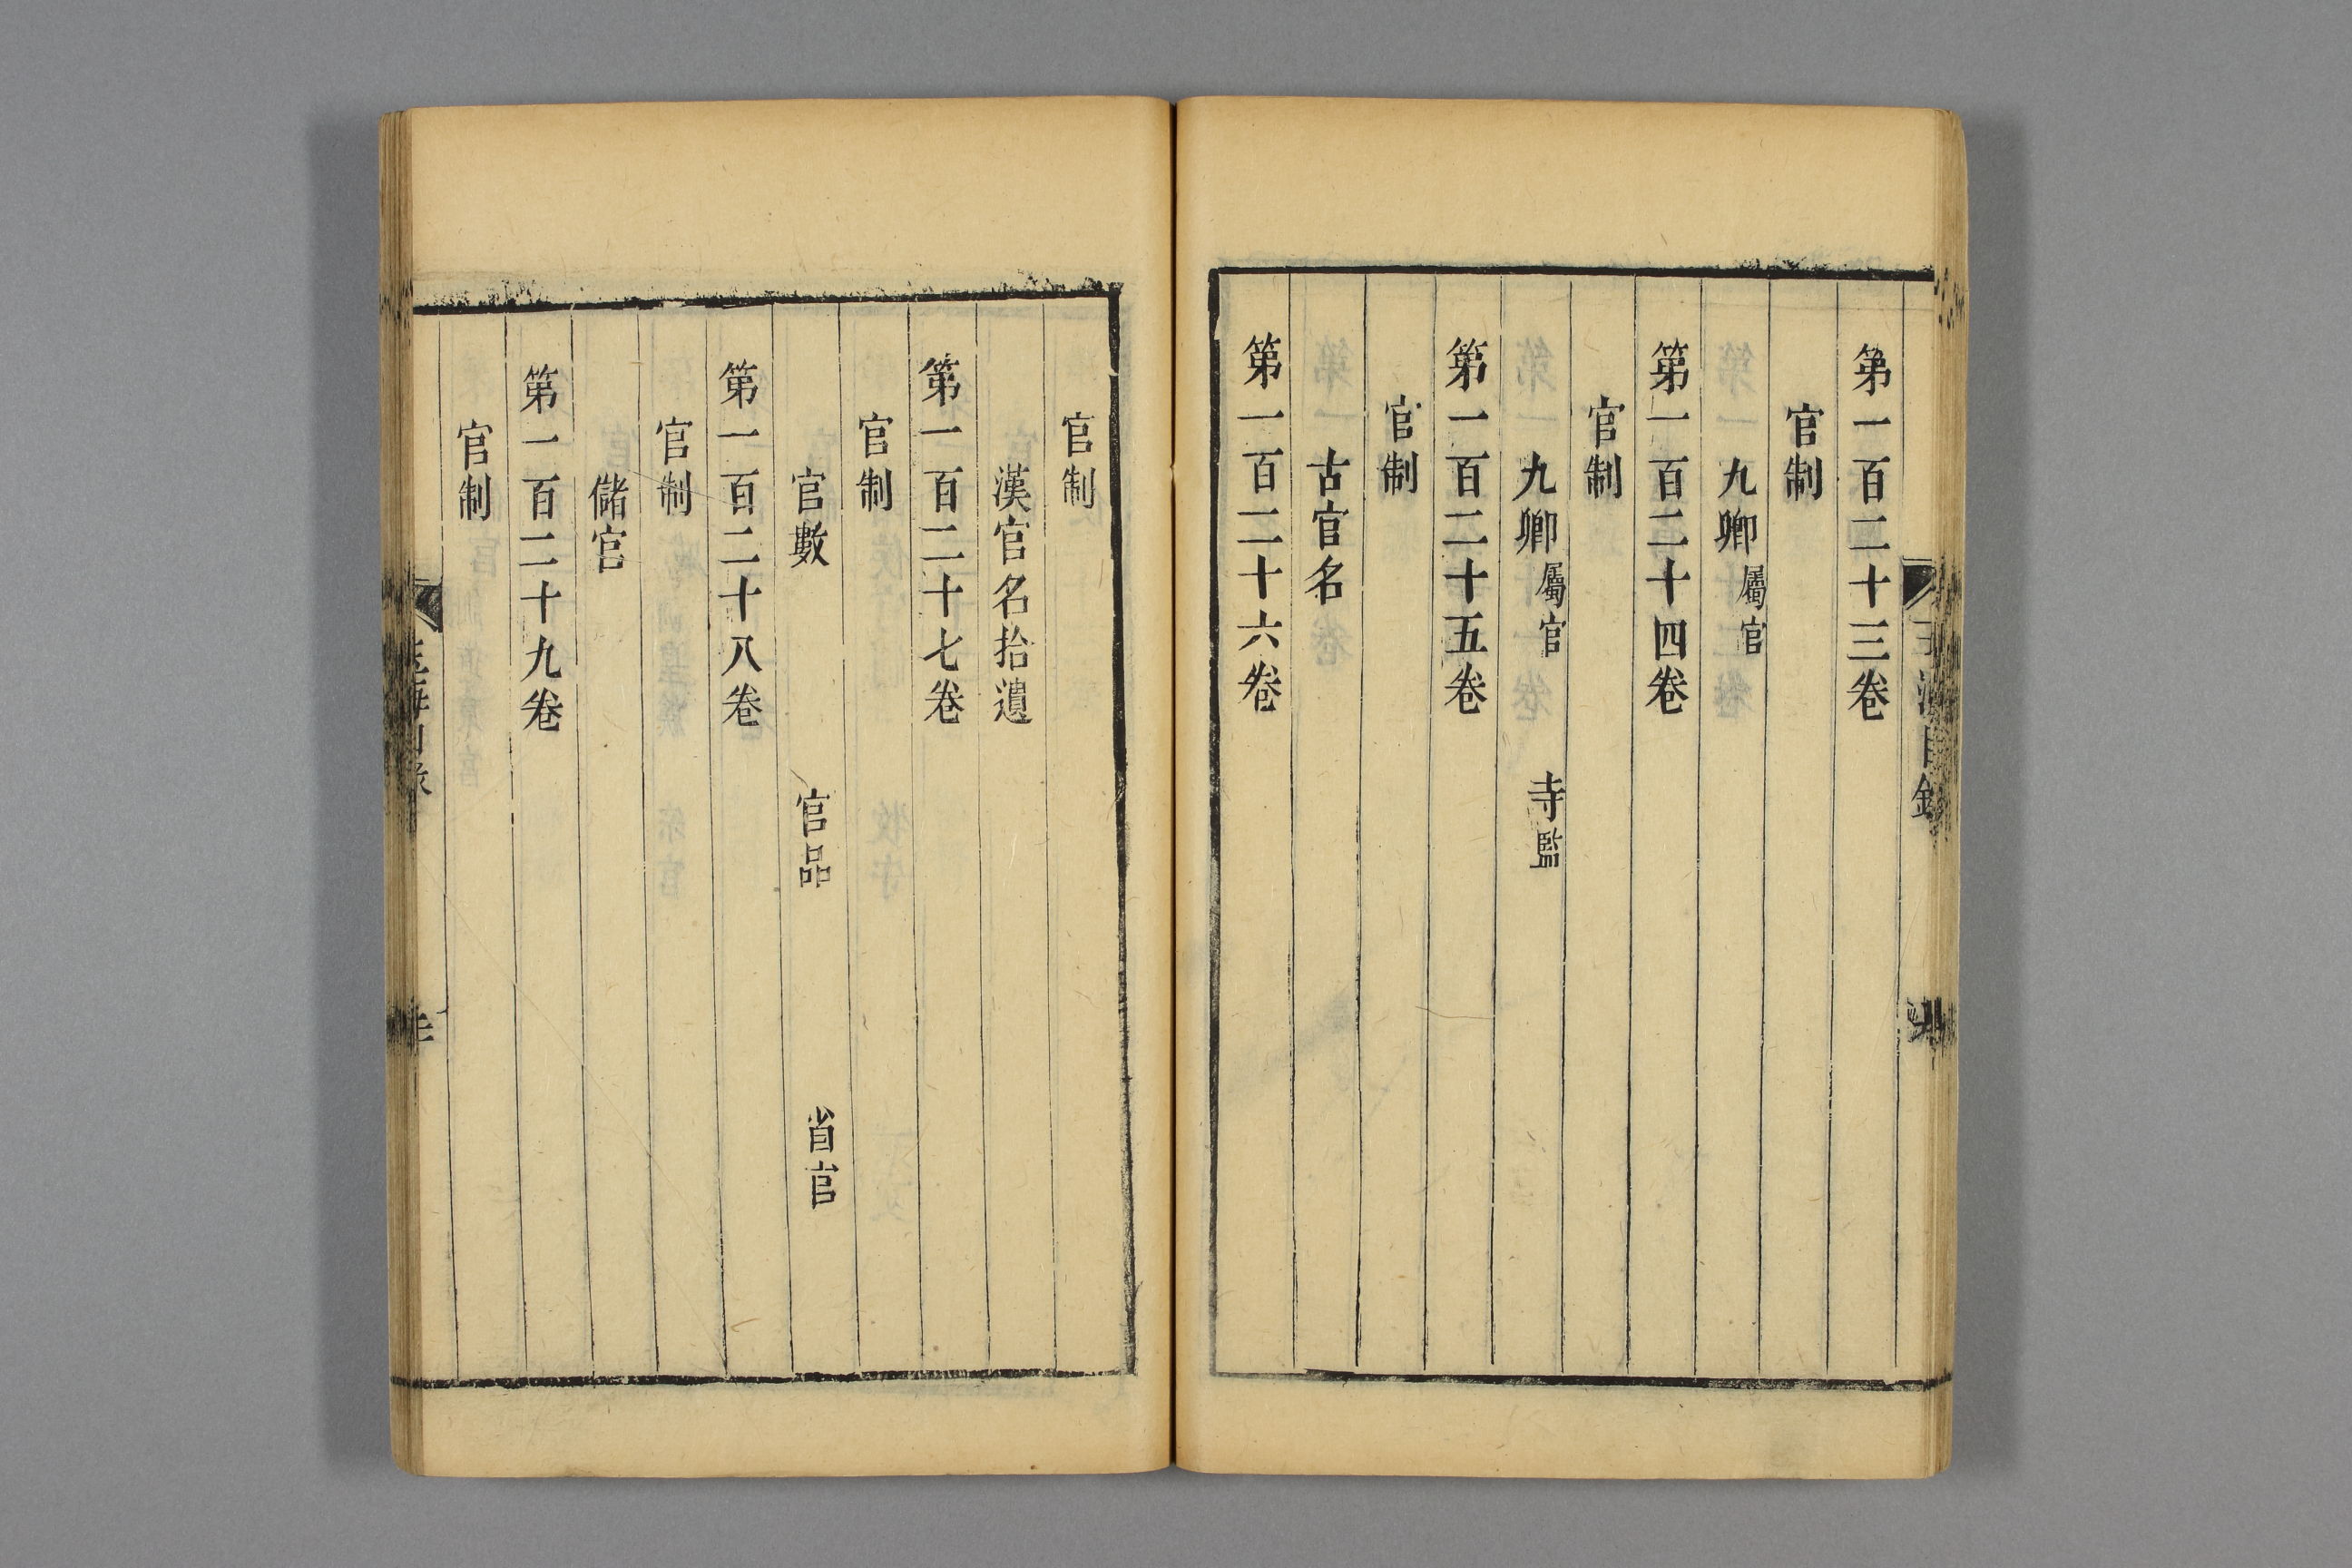 玉海目錄
第一百二十三卷
官制
九卿屬官
第一百二十四卷
官制
九卿屬官 寺監
第一百二十五卷
官制
古官名
第一百二十六卷
官制
漢官名拾遺
第一百二十七卷
官制
官數 官品 省官
第一百二十八卷
官制
儲官
第一百二十九卷
官制
玉海目錄